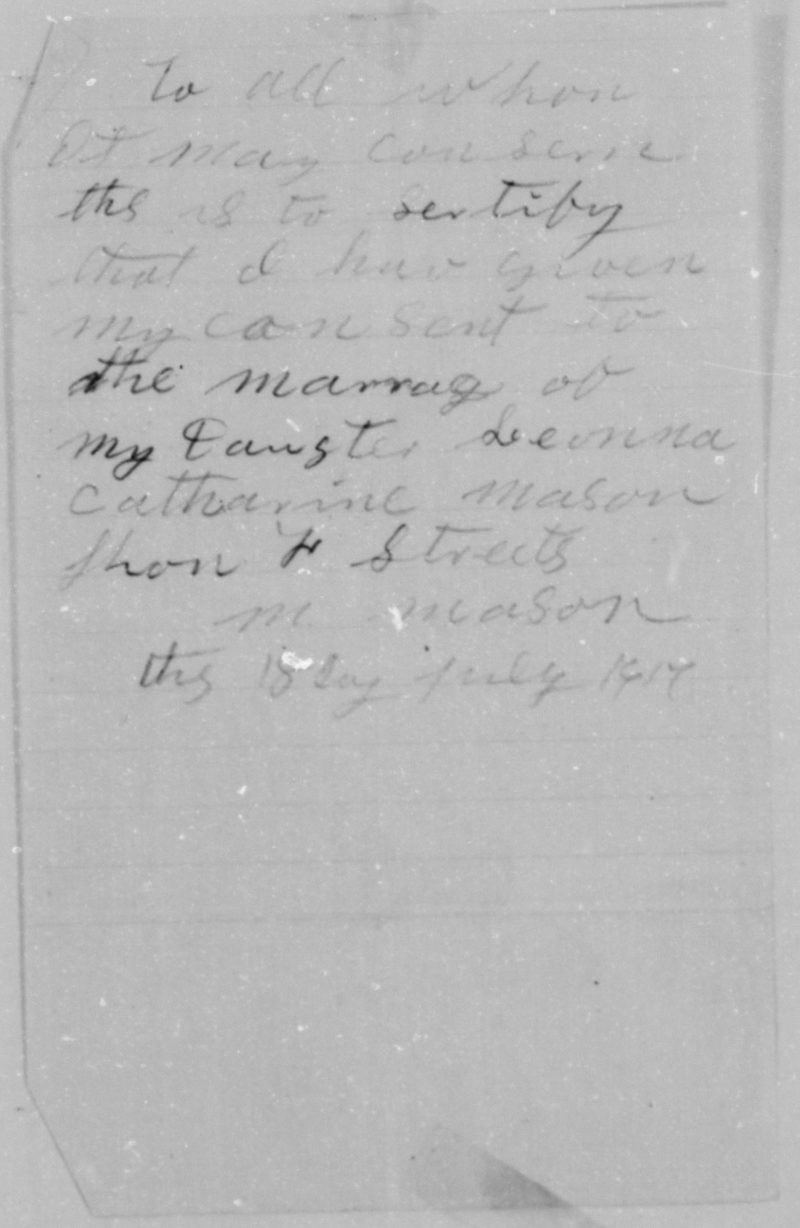 To all whon
It may conserne
ths is to sertify
that I hav given
my consent to
the marrag of
my Daugter Leonna
Catharine Mason
Jhon W Streets
M Mason
ths 18 day July